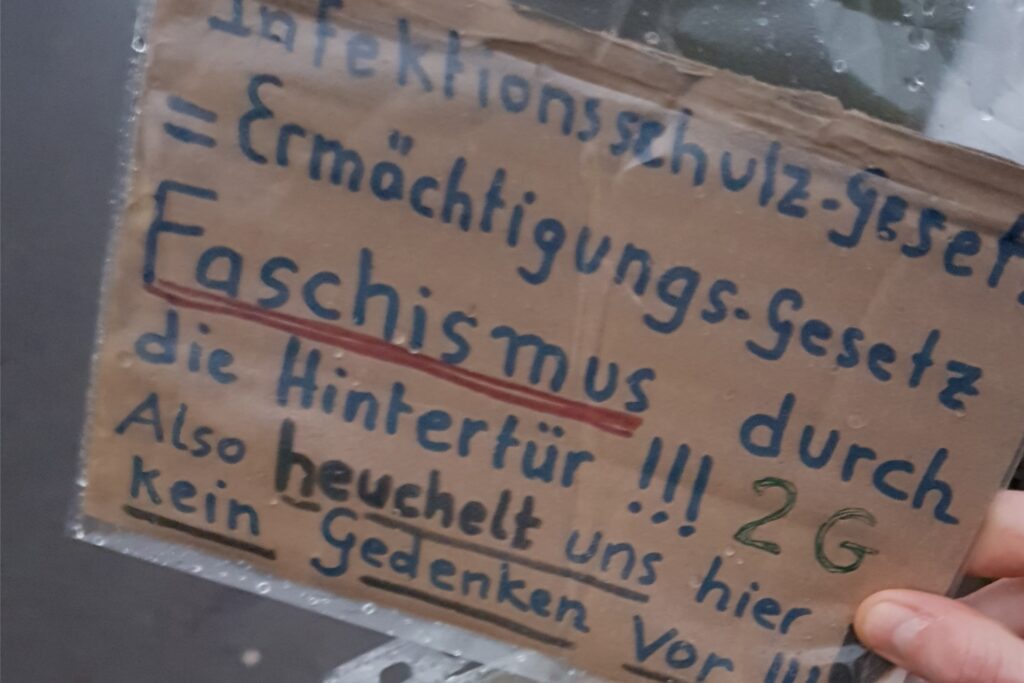 Infektionsschutz-Gesetz
= Ermächtigungs-Gesetz
Faschismus durch
die Hintertür !!! 2G
Also heuchelt uns hier
kein Gedenken vor !!!